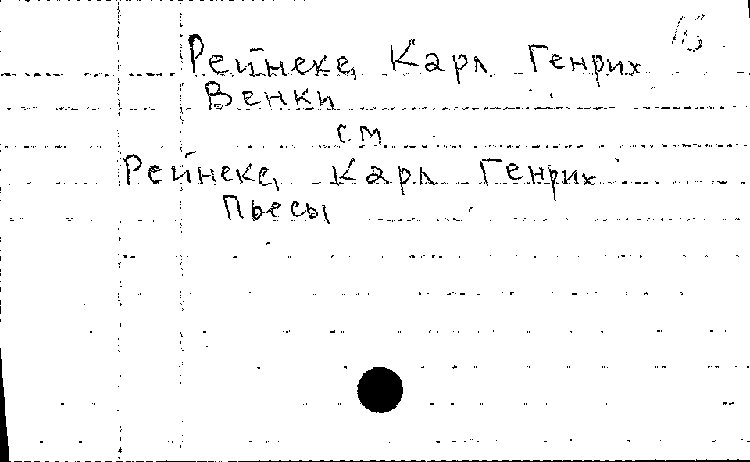 Рейнеке, Карл Генрих
Венки
см
Рейнеке, Карл Генрих
Пьесы